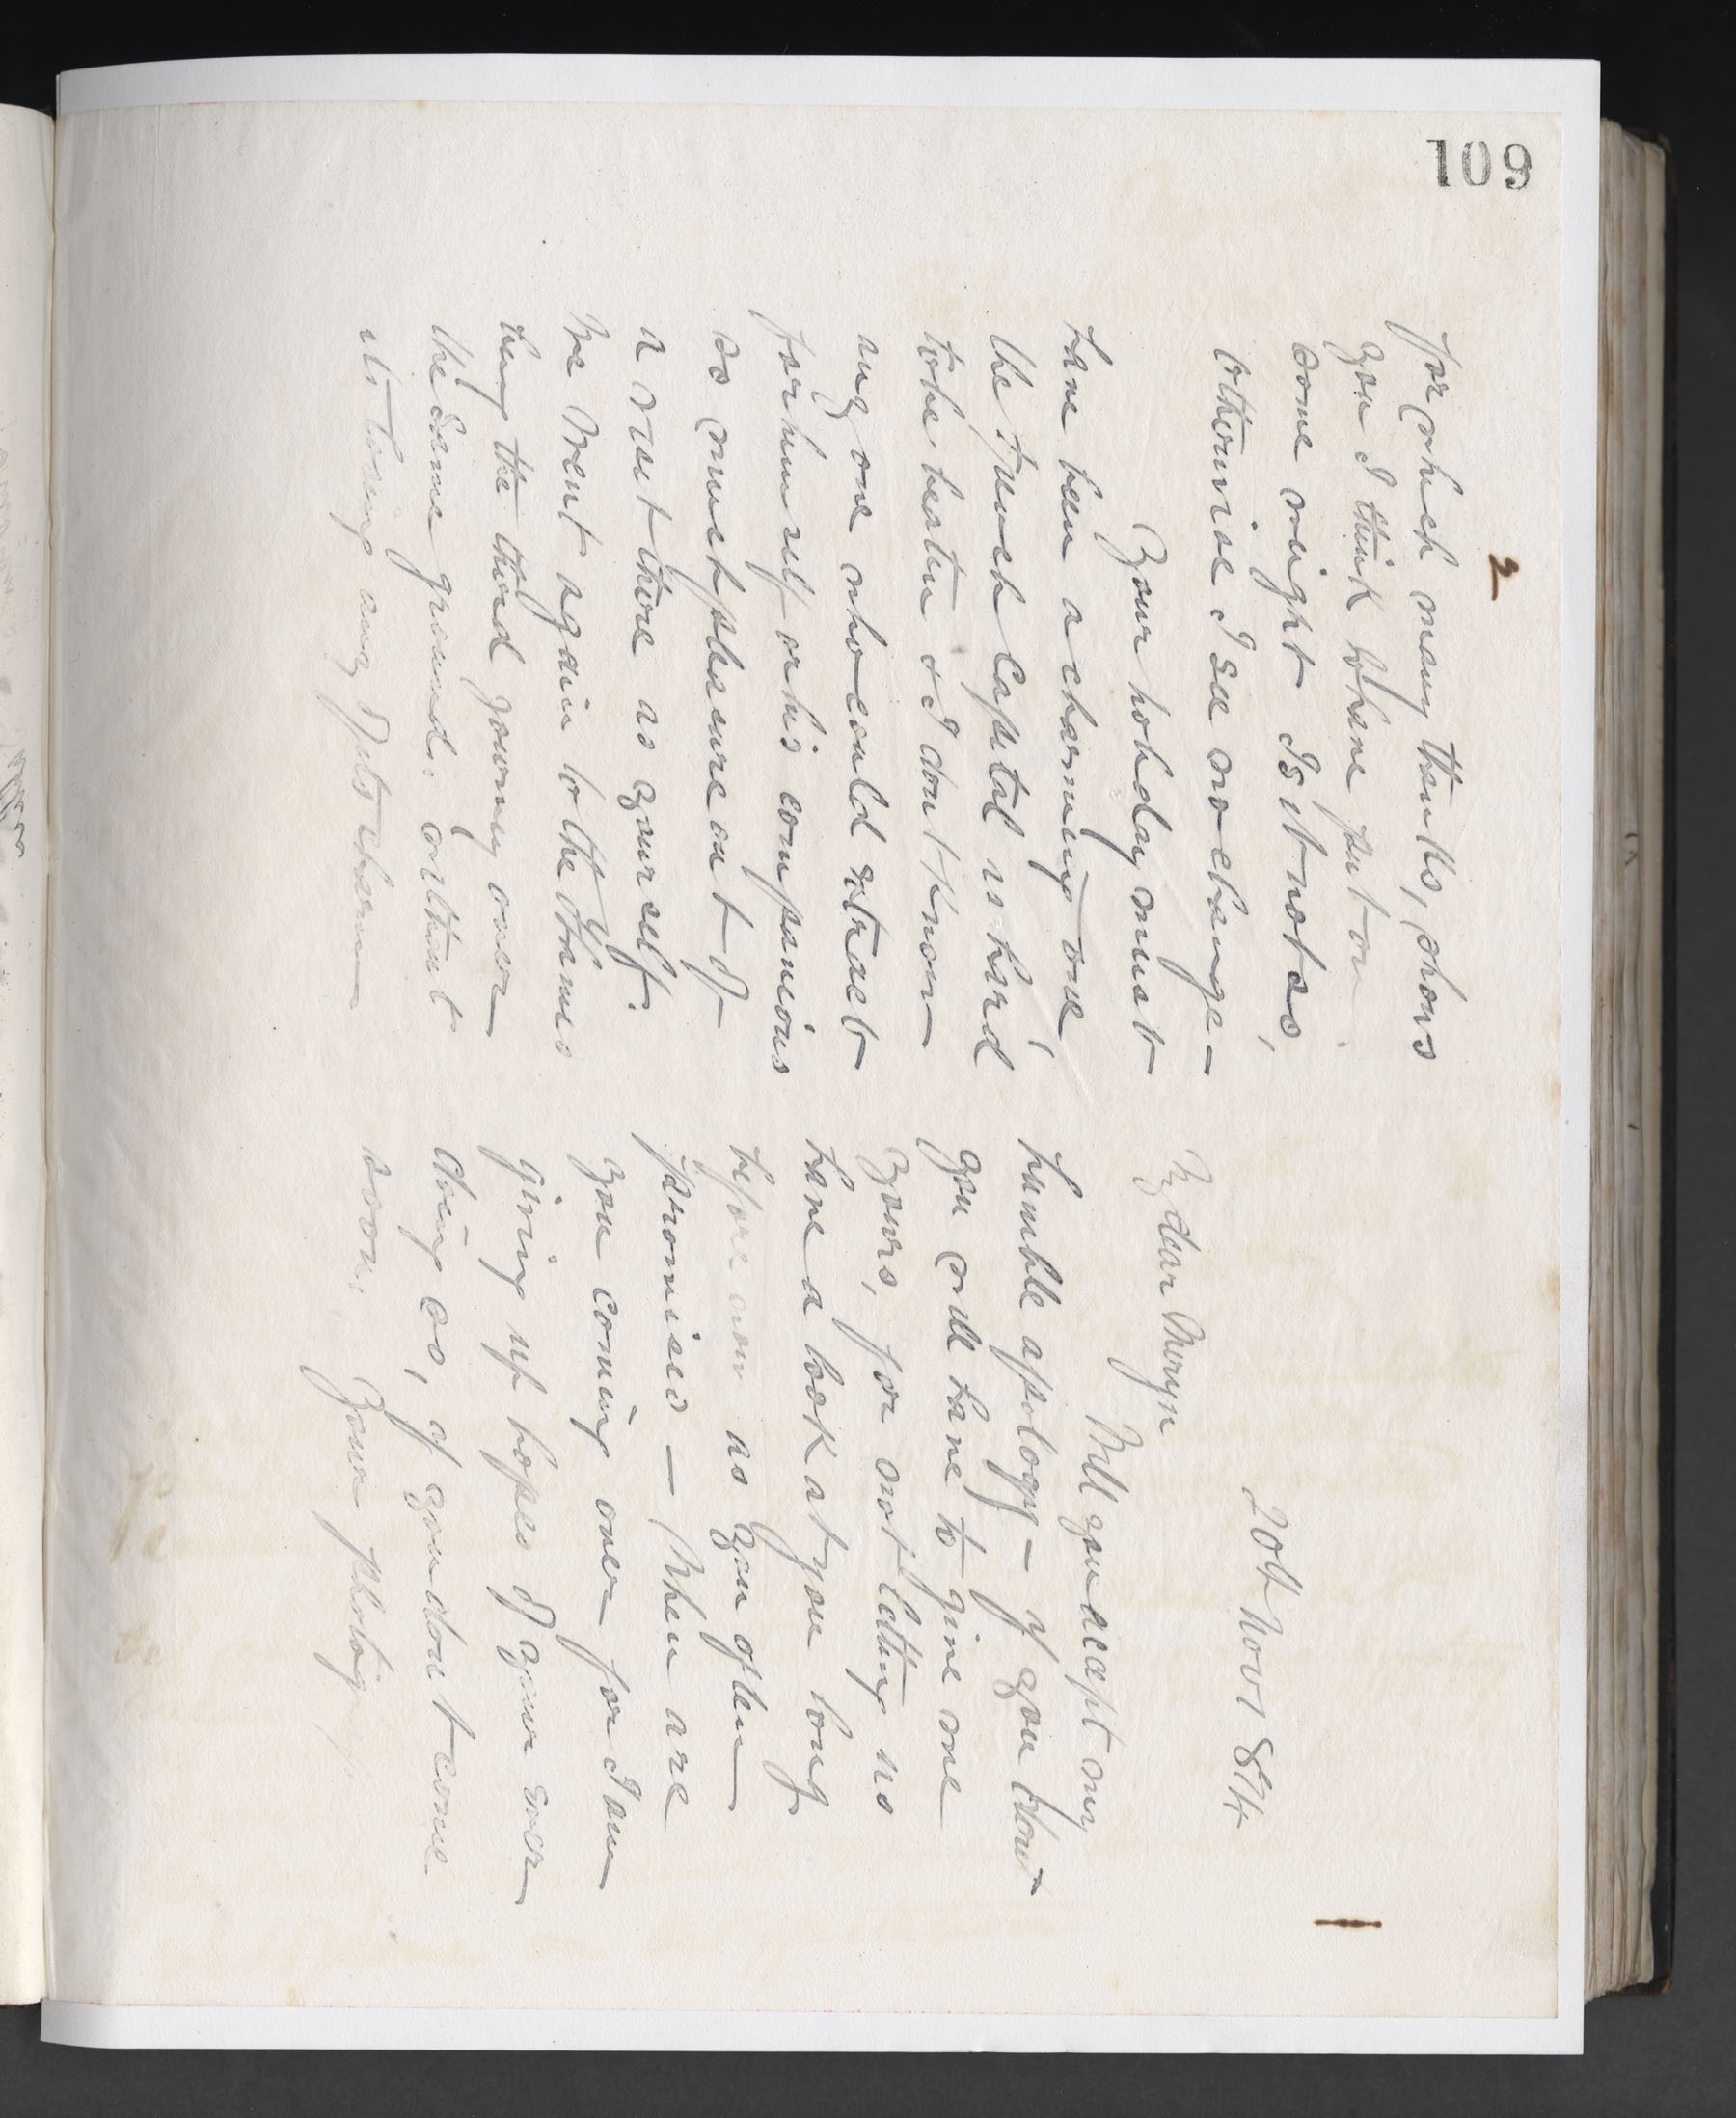 109
1
20th Novr 84
My dear Mervyn
Will you accept my
humble apology - if you dont
you will have to give me
yours, for not letting us
have a look at you long
before now as you often
promised — When are
you coming over for I am
giving up hopes of your ever
doing so, if you dont come
soon. Your photog
2
for which many thanks, shows
you I think to have put on
some weight Is it not so,
otherwise I see no change -
Your holiday must
have been a charming one,
the French Capital is hard
to be beaten & I dont know
any one who could extract
for himself or his companions
so much pleasure out of
a visit there as yourself.
We went again to the Thames
being the third journey over
the same ground: without
its losing any of its charm